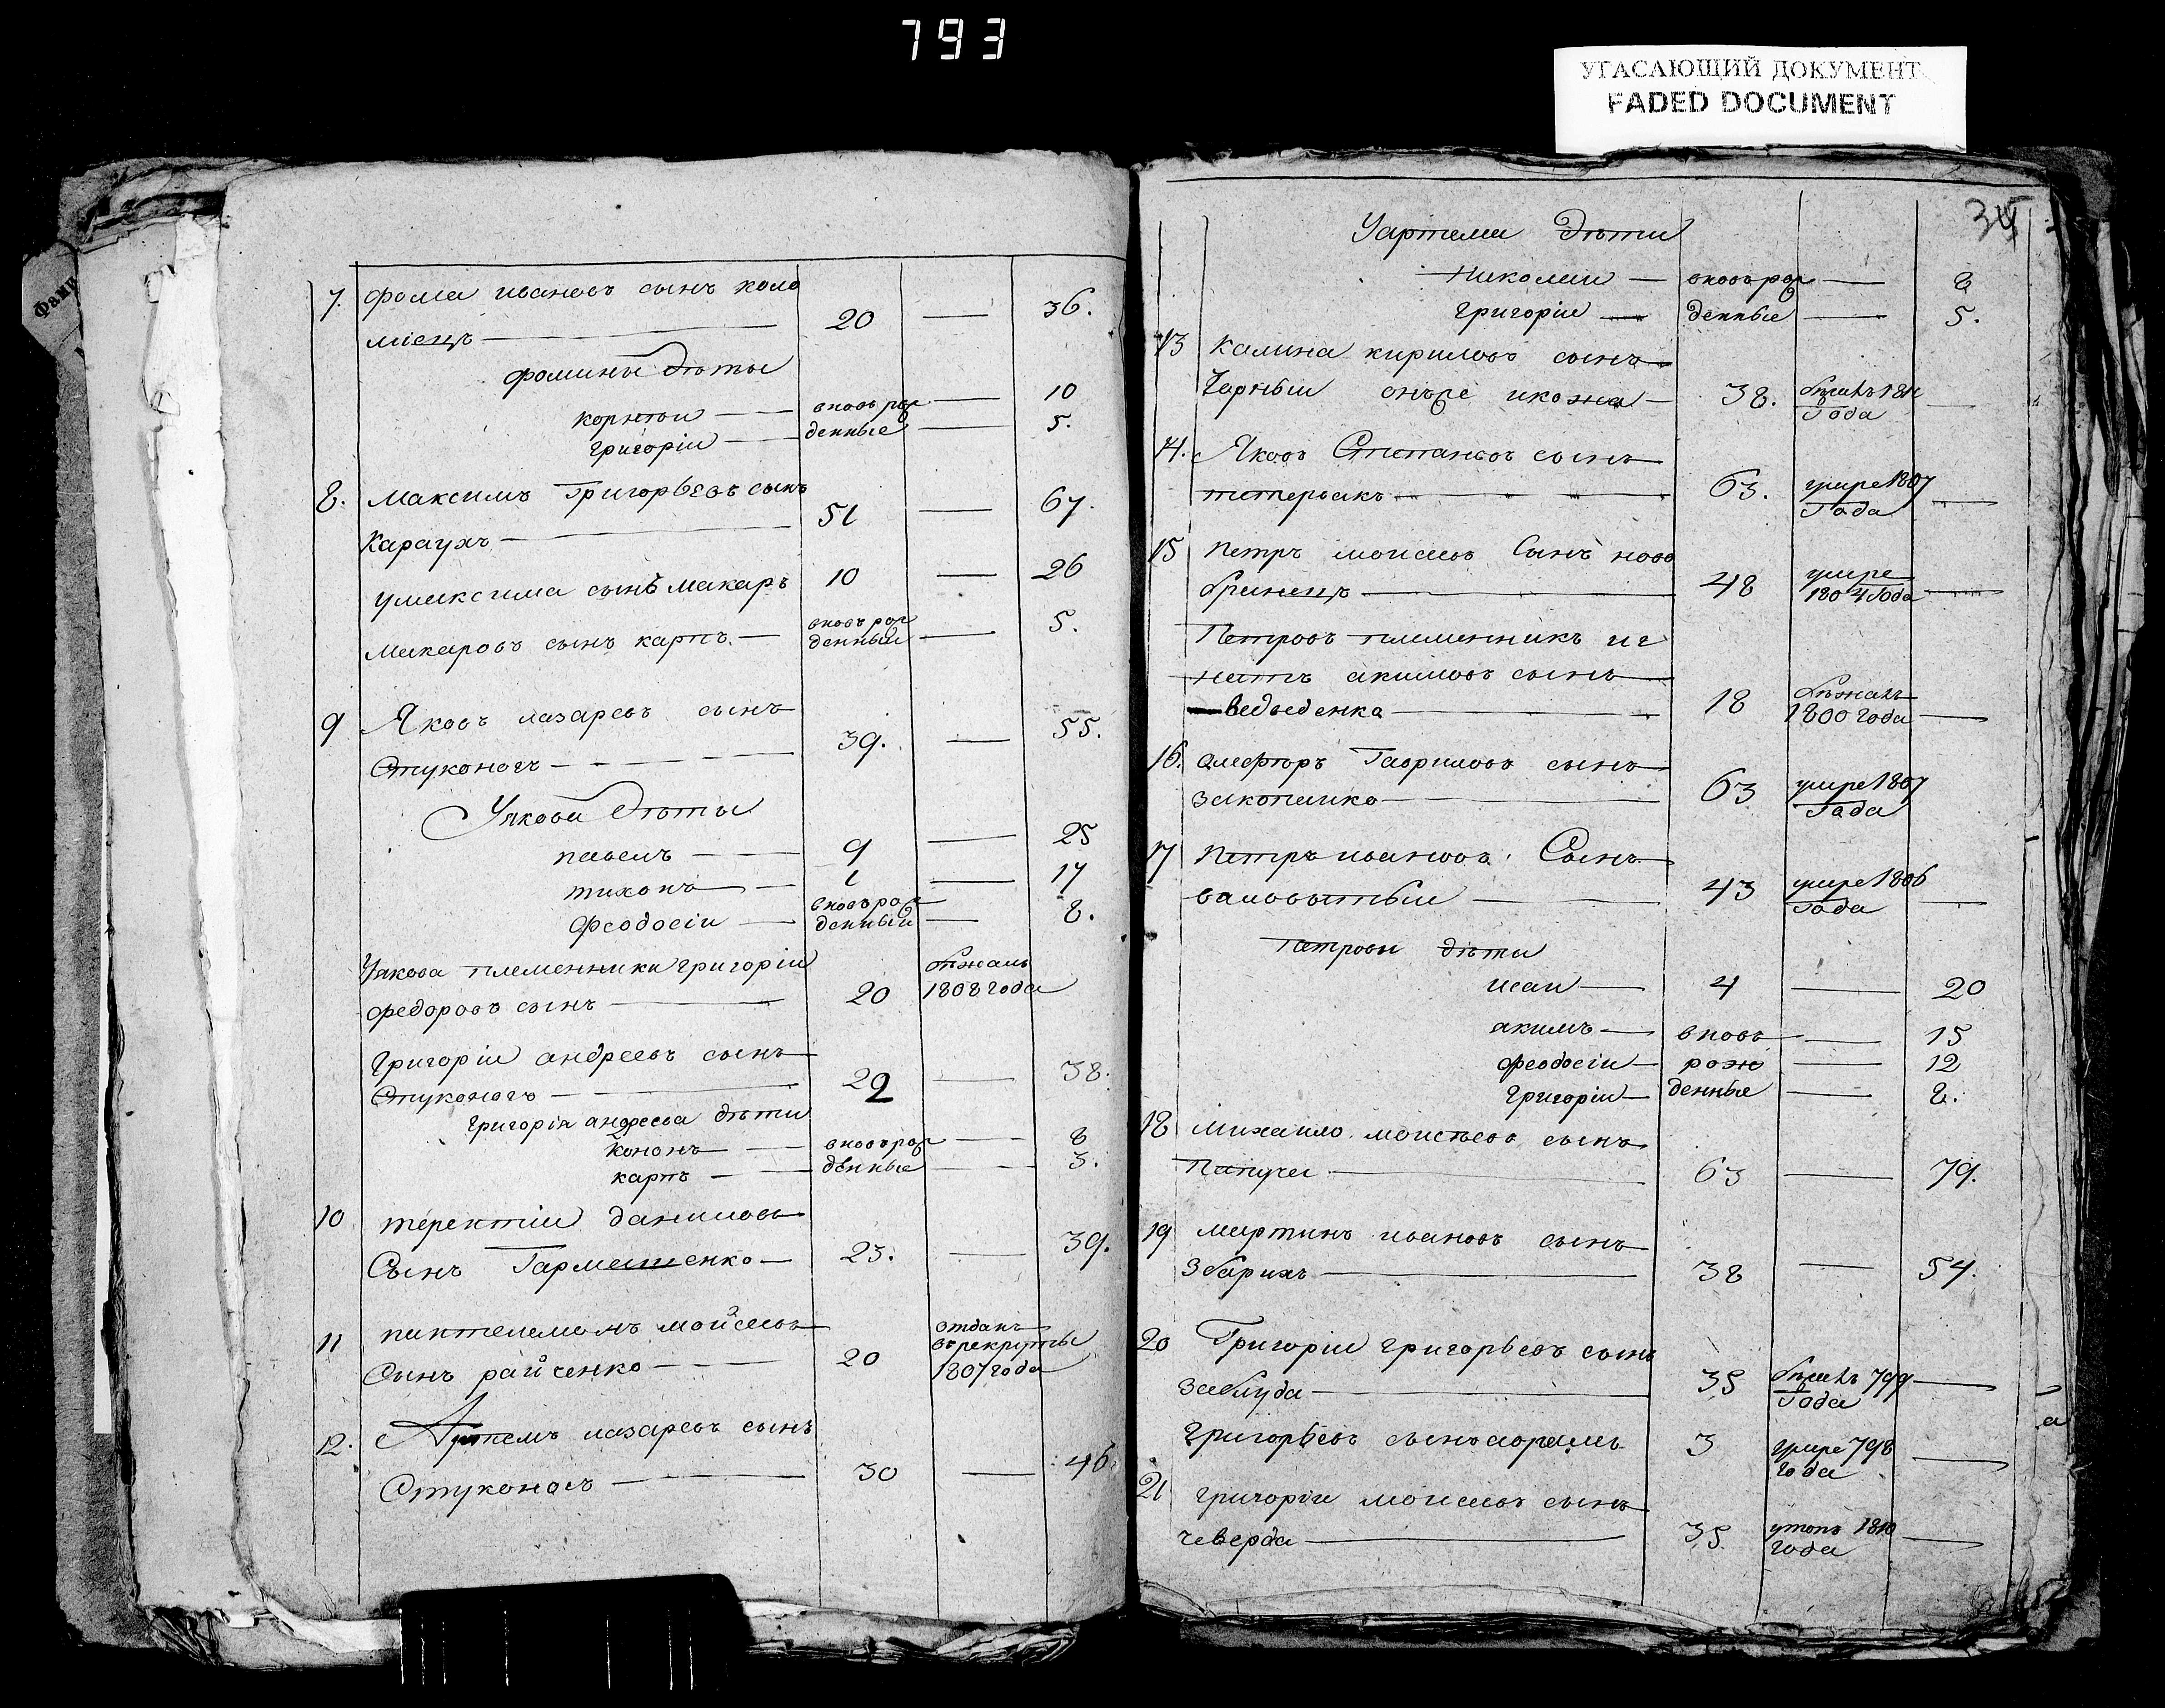 793
УГАСАЮЩИЙ ДОКУМЕНТ
FADED DOCUMENT
7. Фома ивановъ сынъ коло
миецъ 20 36.
Фомины дѣты
корнѣи вновь рож 10
григоріи денные 5.
8. Максимъ Григорьевъ сынъ
Караухъ 51 67.
умаксима сынъ макаръ 10 26
макаровъ сынъ карпъ вновь рож
денныи 5.
9 Яковъ лазаревъ сынъ
Стуконогъ 39. 55.
Уякова дѣты
павелъ 9 25
тихонъ 1 17
феодосіи вновь рож
денныи 8.
Уякова племенники григоріи бѣжалъ
федоровъ сынъ 20 1808 года
григоріи андреевъ сынъ
Стуконогъ 22 38.
григорія андреева дѣти
кононъ вновь рож 8
карпъ денные 3.
10 терентіи даниловъ
Сынъ Гармашенко 23. 39.
11 пантелемонъ мойсеевъ отданъ
Сынъ райченко 20 въ рекруты
1807 года
12. Артемъ лазаревъ сынъ
Стуконогъ 30 46.
35
Уартема дѣти
Николаи вновь рож 8
григоріи денные 5.
13 Калина кириловъ сынъ
Чарныи онъже 38. бѣжалъ 181
Года
14. Яковъ Степановъ сынъ
титерьакъ 63. умре 1807
Года
15 петръ моисеевъ Сынъ ново
бранецъ 48 умре
1804 Года
Петровъ племенникъ иг
натъ акимовъ сынъ
ведведенка 18 бѣжалъ
1800 года
16. Гавриловъ сынъ
закопаико 63 умре 1807
Года
17 Петръ ивановъ Сынъ
валоватыи 43 умре 1806
Года
петровы дѣти
исаи 4 20
акимъ вновь 15
феодосіи рож 12
григоріи денные 8.
18 михаило моисѣевъ сынъ
Папуча 63 79.
19 мартинъ ивановъ сынъ
Збарихъ 38 54.
20 Григоріи григорьевъ сынъ
заблуда 35 бѣжалъ 799
Года
григорьевъ сынъ аврамъ 3 умре 798
года
21 григоріи моисеевъ сынъ
чеверда 35 утопъ 1810
года